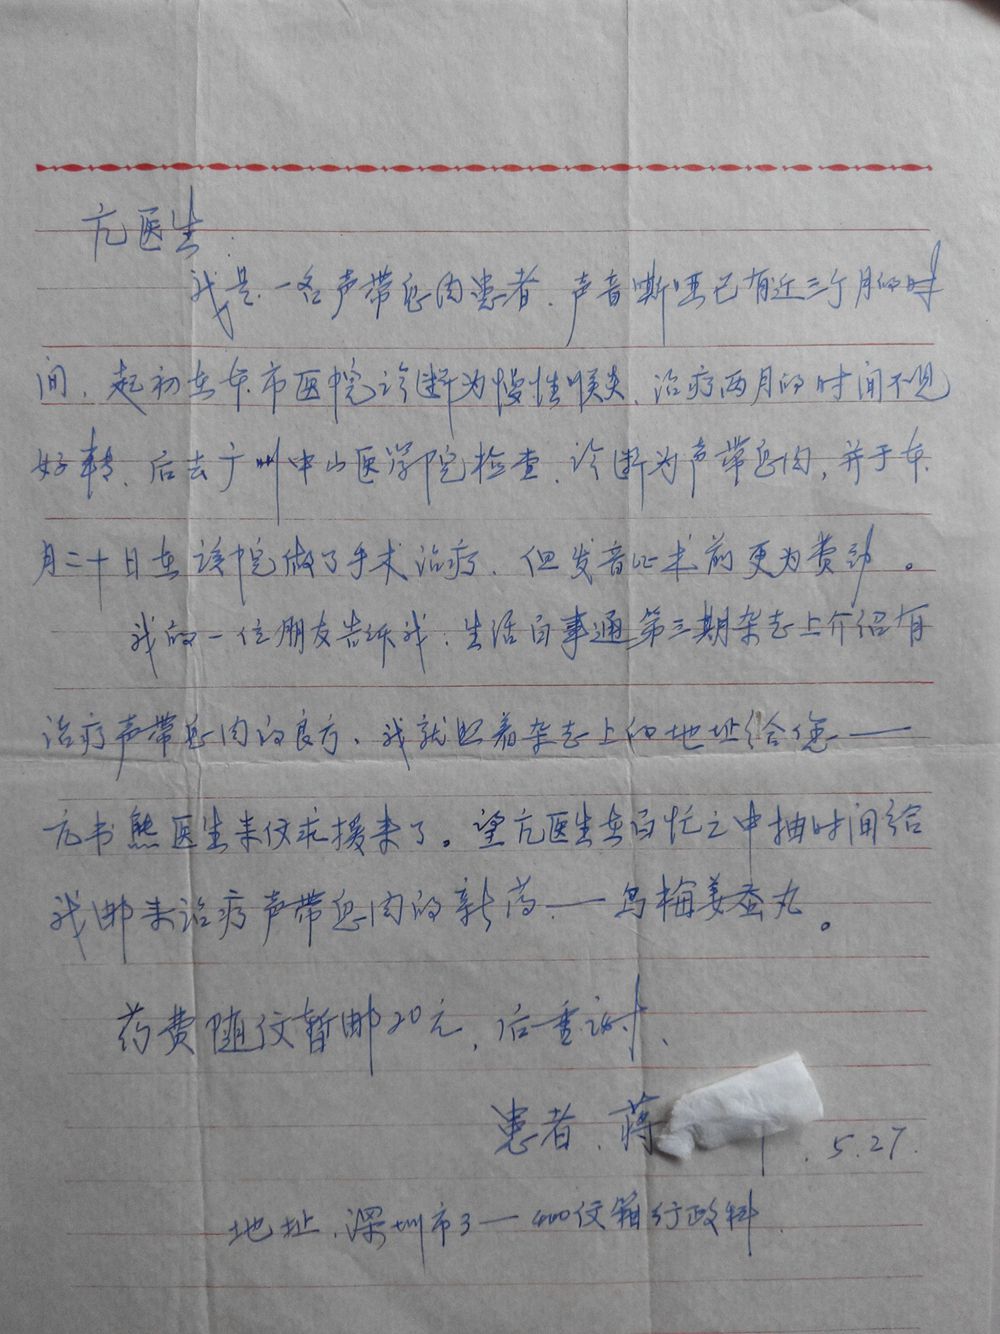 亢医生:
我是一名声带息肉患者.声音嘶哑已有近三个月的时
间.起初在本市医院诊断为慢性喉炎.治疗两月的时间不见
好转.后去广州中山医学院检查.诊断为声带息肉,并于本
月二十日在该院做了手术治疗.但发音比术前更为费劲。
我的一位朋友告诉我:生活百事通第三期杂志上介绍有
治疗声带息肉的良方.我就照着杂志上的地址给您——
亢书熊医生来仪求援来了。望亢医生在百忙之中抽时间给
我邮来治疗声带息肉的新药——乌梅姜蚕丸。
药费随仪暂邮20元,后重
患者.蒋 5.27.
地址.深圳市3—400仪箱行政科